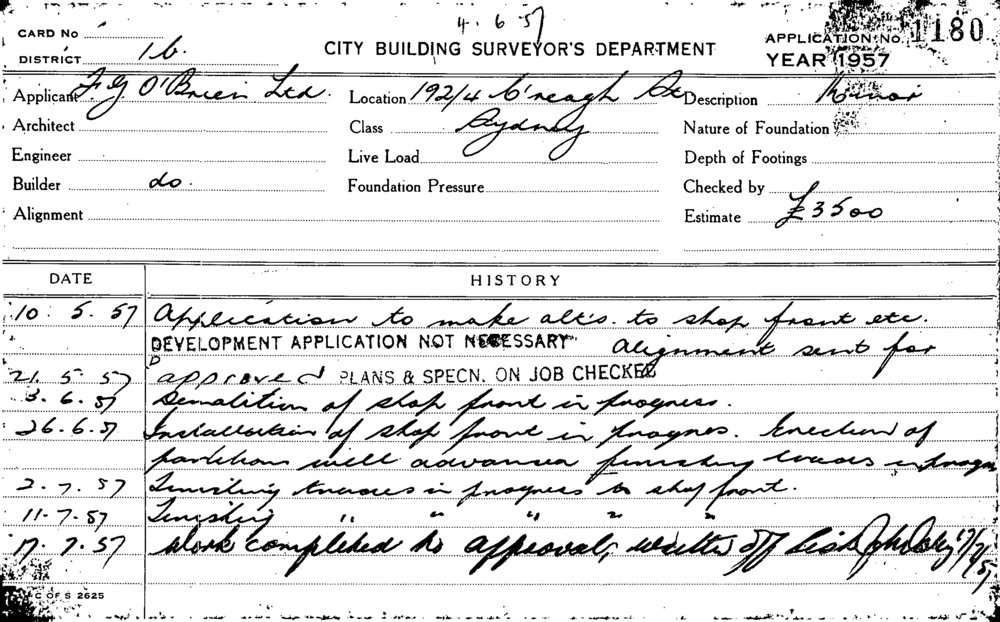 4.6.57
CARD No
DISTRICT 16.
CITY BUILDING SURVEYOR'S DEPARTMENT
APPLICATION No. 1180
YEAR 1957
Applicant F G O'Brien Ltd. Location 192/4 C'reagh St Description Minor
Architect Class Sydney Nature of Foundation
Engineer Live Load Depth of Footings
Builder do. Foundation Pressure Checked by
Alignment Estimate £3500
DATE HISTORY
10. 5. 57 Application to make alt's. to shop front etc.
DEVELOPMENT APPLICATION NOT NECESSARY Alignment sent for
21. 5. 57 approved PLANS & SPECN. ON JOB CHECKED
3. 6. 57 Demolition of shop front in progress.
26. 6. 57 Installation of shop front in progress. Erection of
partitions well advanced finishing trades in progress
2. 7. 57 Finishing trades in progress to shop front.
11. 7. 57 Finishing " " " " "
17. 7. 57 Work completed to approval, written off 17/7/57
C OF S 2625